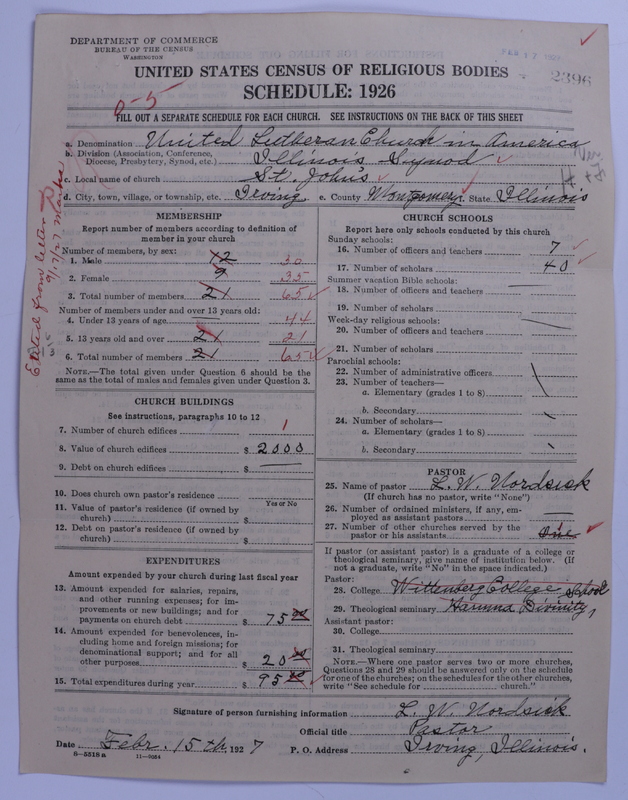 DEPARTMENT OF COMMERCE
BUREAU OF THE CENSUS
WASHINGTON
2396
UNITED STATES CENSUS OF RELIGIOUS BODIES
SCHEDULE: 1926
0-5
FILL OUT A SEPARATE SCHEDULE FOR EACH CHURCH. SEE INSTRUCTIONS ON THE BACK OF THIS SHEET
a. Denomination United Lutheran Church in America
b. Division (Association, Conference, Diocese, Presbytery, Synod, etc.) Illinois Synod
c. Local name of church St. John's
d. City, town, village, or township, etc. Irving e. County Montgomery f. State Illinois
9/17/27
MEMBERSHIP
Report number of members according to definition of
member in your church
Number of members, by sex:
1. Male 12 30
2. Female 9 35
3. Total number of members 21 65
Number of members under and over 13 years old:
4. Under 13 years of age 44
5. 13 years old and over 21 21
6. Total number of members 21 65
NOTE.—The total given under Question 6 should be the
same as the total of males and females given under Question 3.
CHURCH BUILDINGS
See instructions, paragraphs 10 to 12
7. Number of church edifices 1
8. Value of church edifices $ 2000
9. Debt on church edifices $
10. Does church own pastor's residence
Yes or No
11. Value of pastor's residence (if owned by
church) $
12. Debt on pastor's residence (if owned by
church) $
EXPENDITURES
Amount expended by your church during last fiscal year
13. Amount expended for salaries, repairs,
and other running expenses; for im-
provements or new buildings; and for
payments on church debt $ 75 00
14. Amount expended for benevolences, in-
cluding home and foreign missions; for
denominational support; and for all
other purposes $ 20 00
15. Total expenditures during year $ 95 00
CHURCH SCHOOLS
Report here only schools conducted by this church
Sunday schools:
16. Number of officers and teachers 7
17. Number of scholars 40
Summer vacation Bible schools:
18. Number of officers and teachers
19. Number of scholars
Week-day religious schools:
20. Number of officers and teachers
21. Number of scholars
Parochial schools:
22. Number of administrative officers
23. Number of teachers—
a. Elementary (grades 1 to 8)
b. Secondary
24. Number of scholars—
a. Elementary (grades 1 to 8)
b. Secondary
PASTOR
25. Name of pastor L. W. Nordsiek
(If church has no pastor, write "None")
26. Number of ordained ministers, if any, em-
ployed as assistant pastors
27. Number of other churches served by the
pastor or his assistants One
If pastor (or assistant pastor) is a graduate of a college or
theological seminary, give name of institution below. (If
not a graduate, write "No" in the space indicated.)
Pastor:
28. College Wittenberg College
29. Theological seminary Hamma Divinity School
Assistant pastor:
30. College
31. Theological seminary
NOTE.—Where one pastor serves two or more churches,
Questions 28 and 29 should be answered only on the schedule
for one of the churches; on the schedules for the other churches,
write "See schedule for church."
Signature of person furnishing information L. W. Nordsiek
Official title Pastor
Date Febr. 15th, 1927 P. O. Address Irving, Illinois.
8-5518 a 11-5024